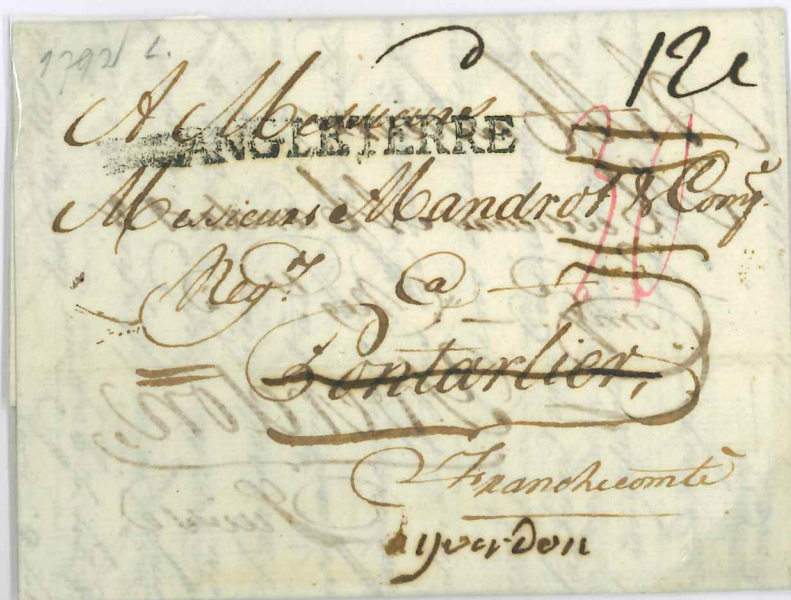 1792 L.
12c
A Messieurs
ANGLETERRE
Messieurs Mandrot & Comp.e
Neg.ts
a
Pontarlier,
Franchecomté
a yverdon